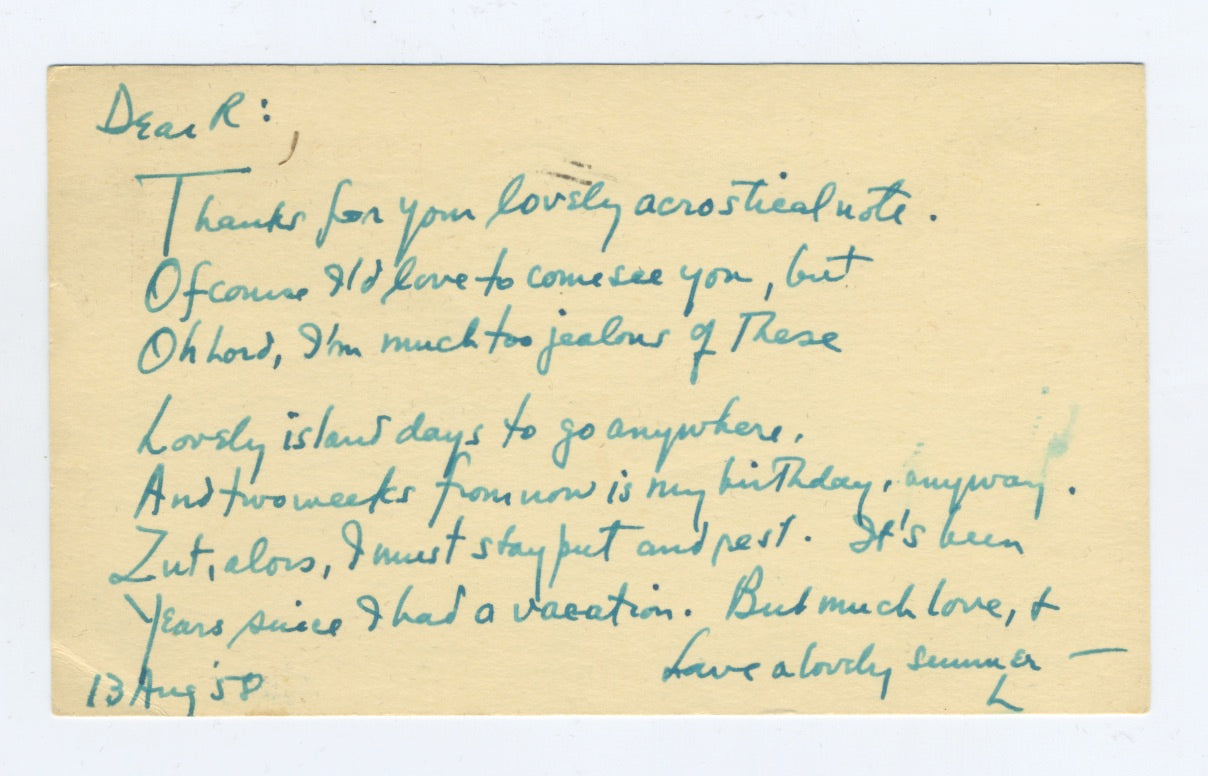 Dear R:
Thanks for your lovely acrostical note.
Of course I'd love to come see you, but
Oh Lord, I'm much too jealous of these
Lovely island days to go anywhere.
And two weeks from now is my birthday, anyway.
Zut, alors, I must stay put and rest. It's been
Years since I had a vacation. But much love, &
have a lovely summer —
13 Aug '58
L